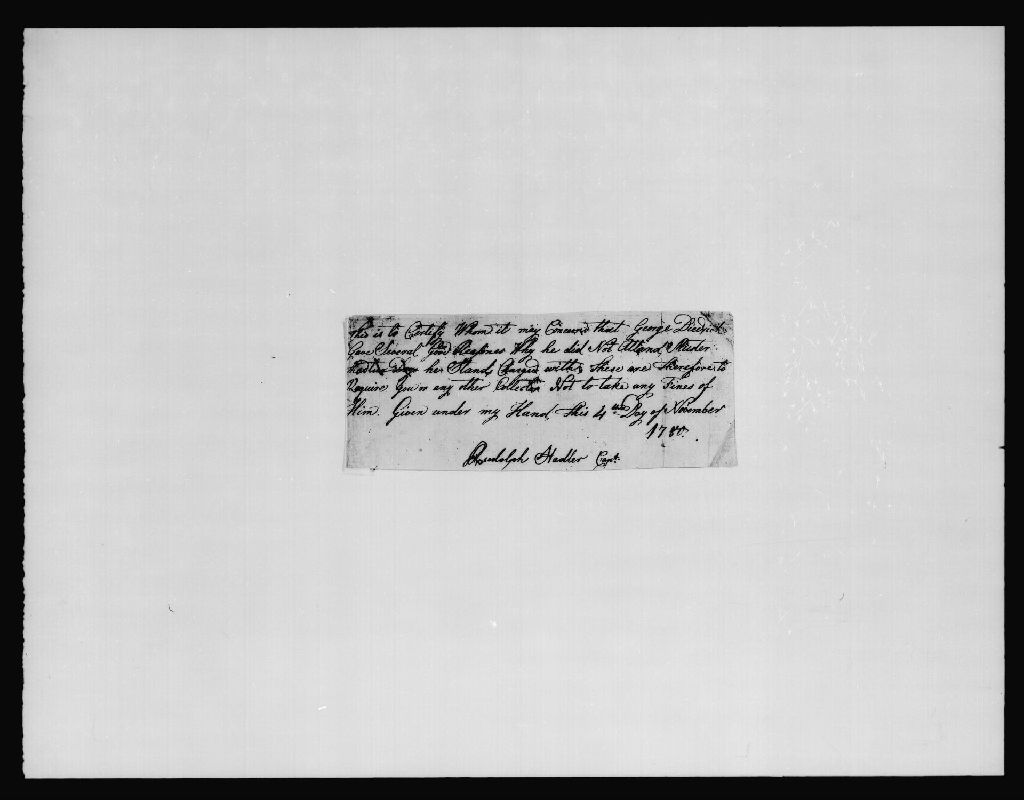 This is to Certify Whom it may Concern'd that George Diedrich
Gave Several Good Reasones Why he did Not Attend Muster
he Stands Charged with These are Therefore to
Require You or any other Collector Not to take any Fines of
Him. Given under my Hand This 4th Day of November
1780.
Rudolph Hadler Capt.